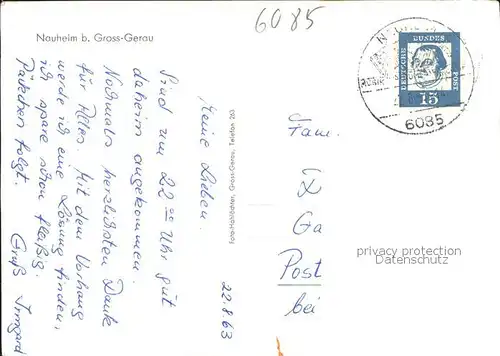 6085
Nauheim b. Gross-Gerau
22.8.63
Meine Lieben.
Sind um 22 00 Uhr gut
daheim angekommen.
Nochmals herzlichsten Dank
für Alles. Mit dem Vorhang
werde ich eine Lösung finden,
ich spare schon fleißig.
Päckchen folgt.
Gruß Irmgard
Gross-Gerau, Telefon 263
DEUTSCHE BUNDESPOST
15
6085
Fam.
Post
bei
privacy protection
Datenschutz